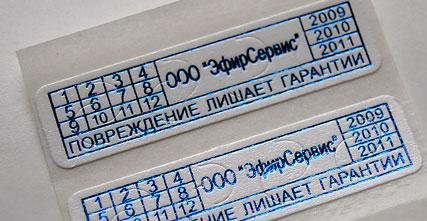 1 2 3 4 ООО "ЭфирСервис" 2009
5 6 7 8 2010
9 10 11 12 2011
ПОВРЕЖДЕНИЕ ЛИШАЕТ ГАРАНТИИ
1 2 3 4 ООО "ЭфирСервис" 2009
5 6 7 8 2010
11 12 2011
ЛИШАЕТ ГАРАНТИИ